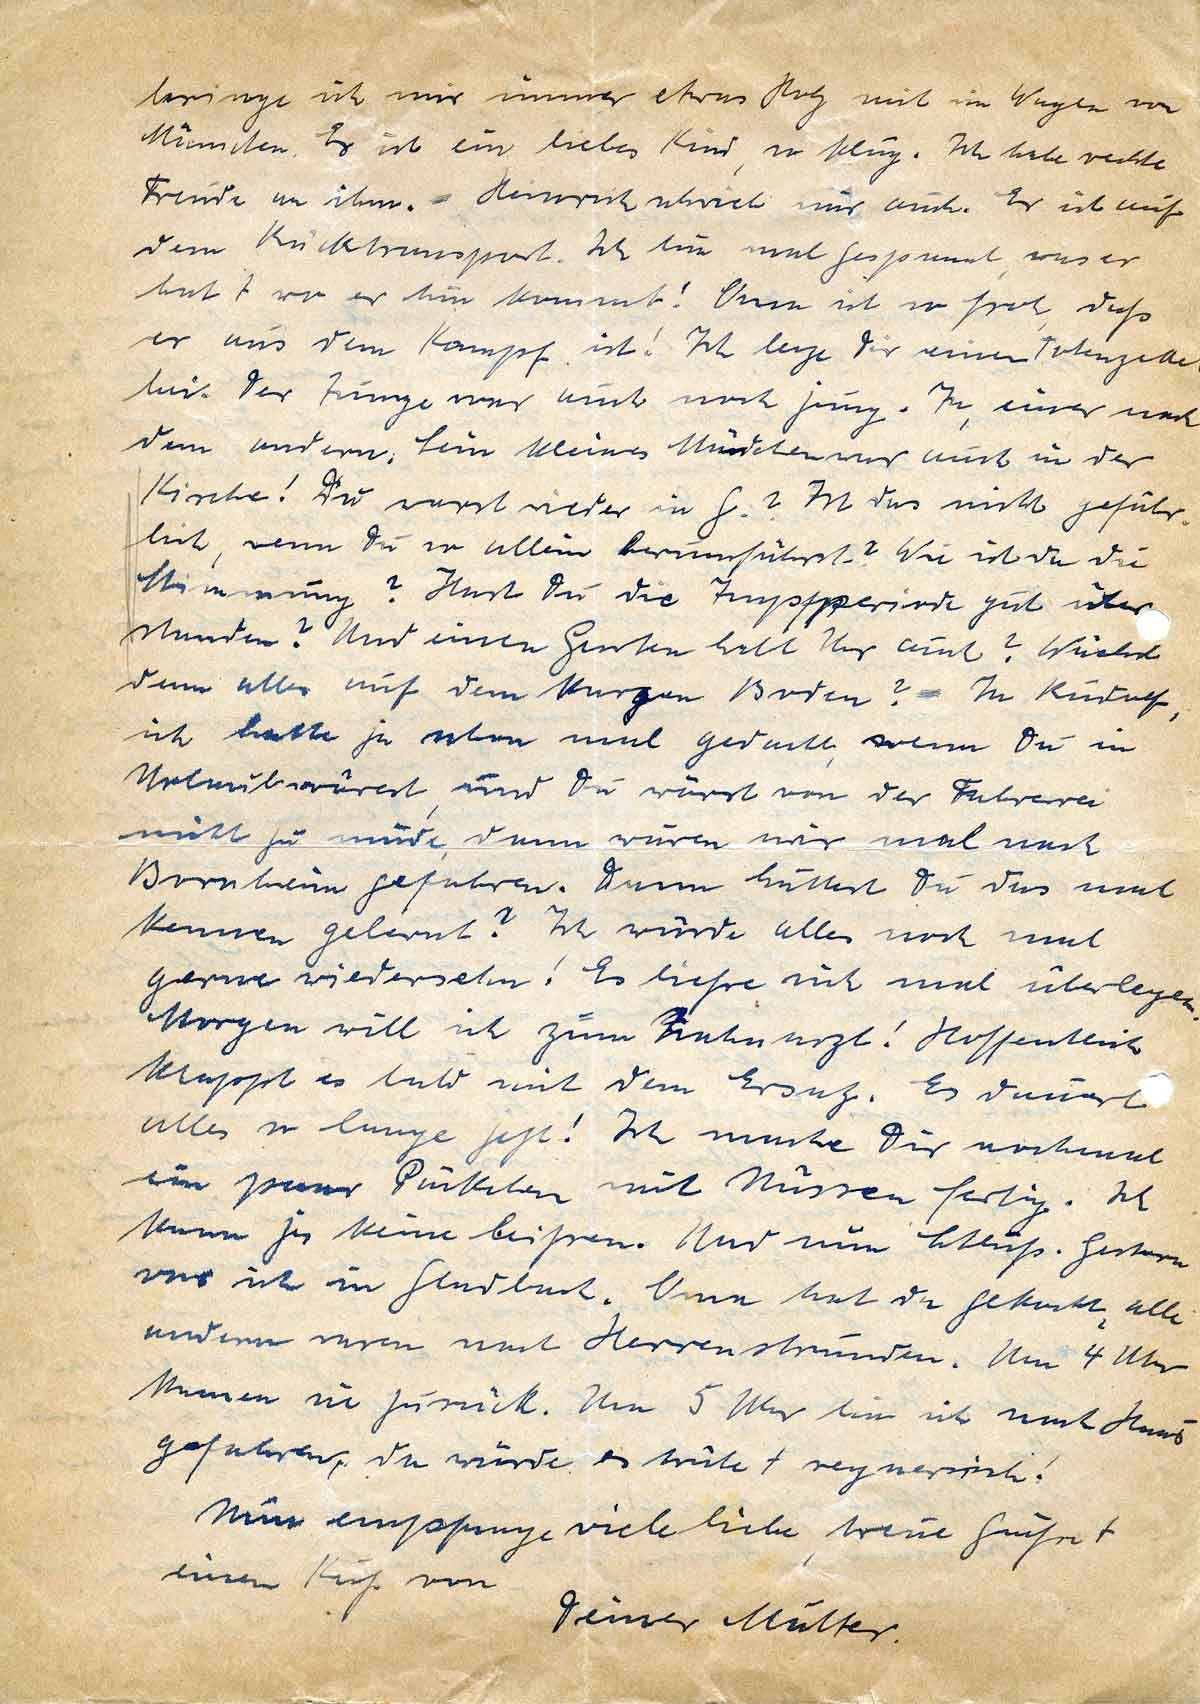 bringe ich mir immer etwas Holz mit im Wagen von
München. Er ist ein liebes Kind, so klug. Ich habe rechte
Freude an ihm. = Heinrich schrieb mir auch. Er ist auf
dem Rücktransport. Ich bin mal gespannt, was er
hat + wo er hin kommt! Oma ist so froh, daß
er aus dem Kampf ist! Ich lege Dir einen Totenzettel
bei. Der Junge war auch noch jung. Ja, einer nach
dem andern. Sein kleines Mädchen war auch in der
Kirche! Du warst wieder in G.? Ist das nicht gefähr-
lich, wenn Du so allein herumfährst? Wie ist da die
Stimmung? Hast Du die Impfperiode gut über
standen? Und einen Garten habt Ihr auch? Wächst
denn alles auf dem kargen Boden? = Ja Rudolf,
ich hatte ja schon mal gedacht, wenn Du in
Urlaub wärest, und Du wärst von der Fahrerei
nicht zu müde, dann wären wir mal nach
Bornheim gefahren. Dann hättest Du das mal
kennen gelernt? Ich würde alles noch mal
gerne wiedersehn! Es ließe sich mal überlegen.
Morgen will ich zum Zahnarzt! Hoffentlich
klappt es bald mit dem Ersatz. Es dauert
alles so lange jetzt! Ich mache Dir nochmal
ein paar Päckchen mit Nüssen fertig. Ich
kann ja keine beißen. Und nun Schluß. Gestern
war ich in Gladbach. Oma hat da gekocht, alle
andern waren nach Herrenstrunden. Um 4 Uhr
kamen sie zurück. Um 5 Uhr bin ich nach Haus
gefahren, da wurde es trübe + regnerisch!
Nun empfange viele liebe, treue Grüße +
einen Kuß von
Deiner Mutter.